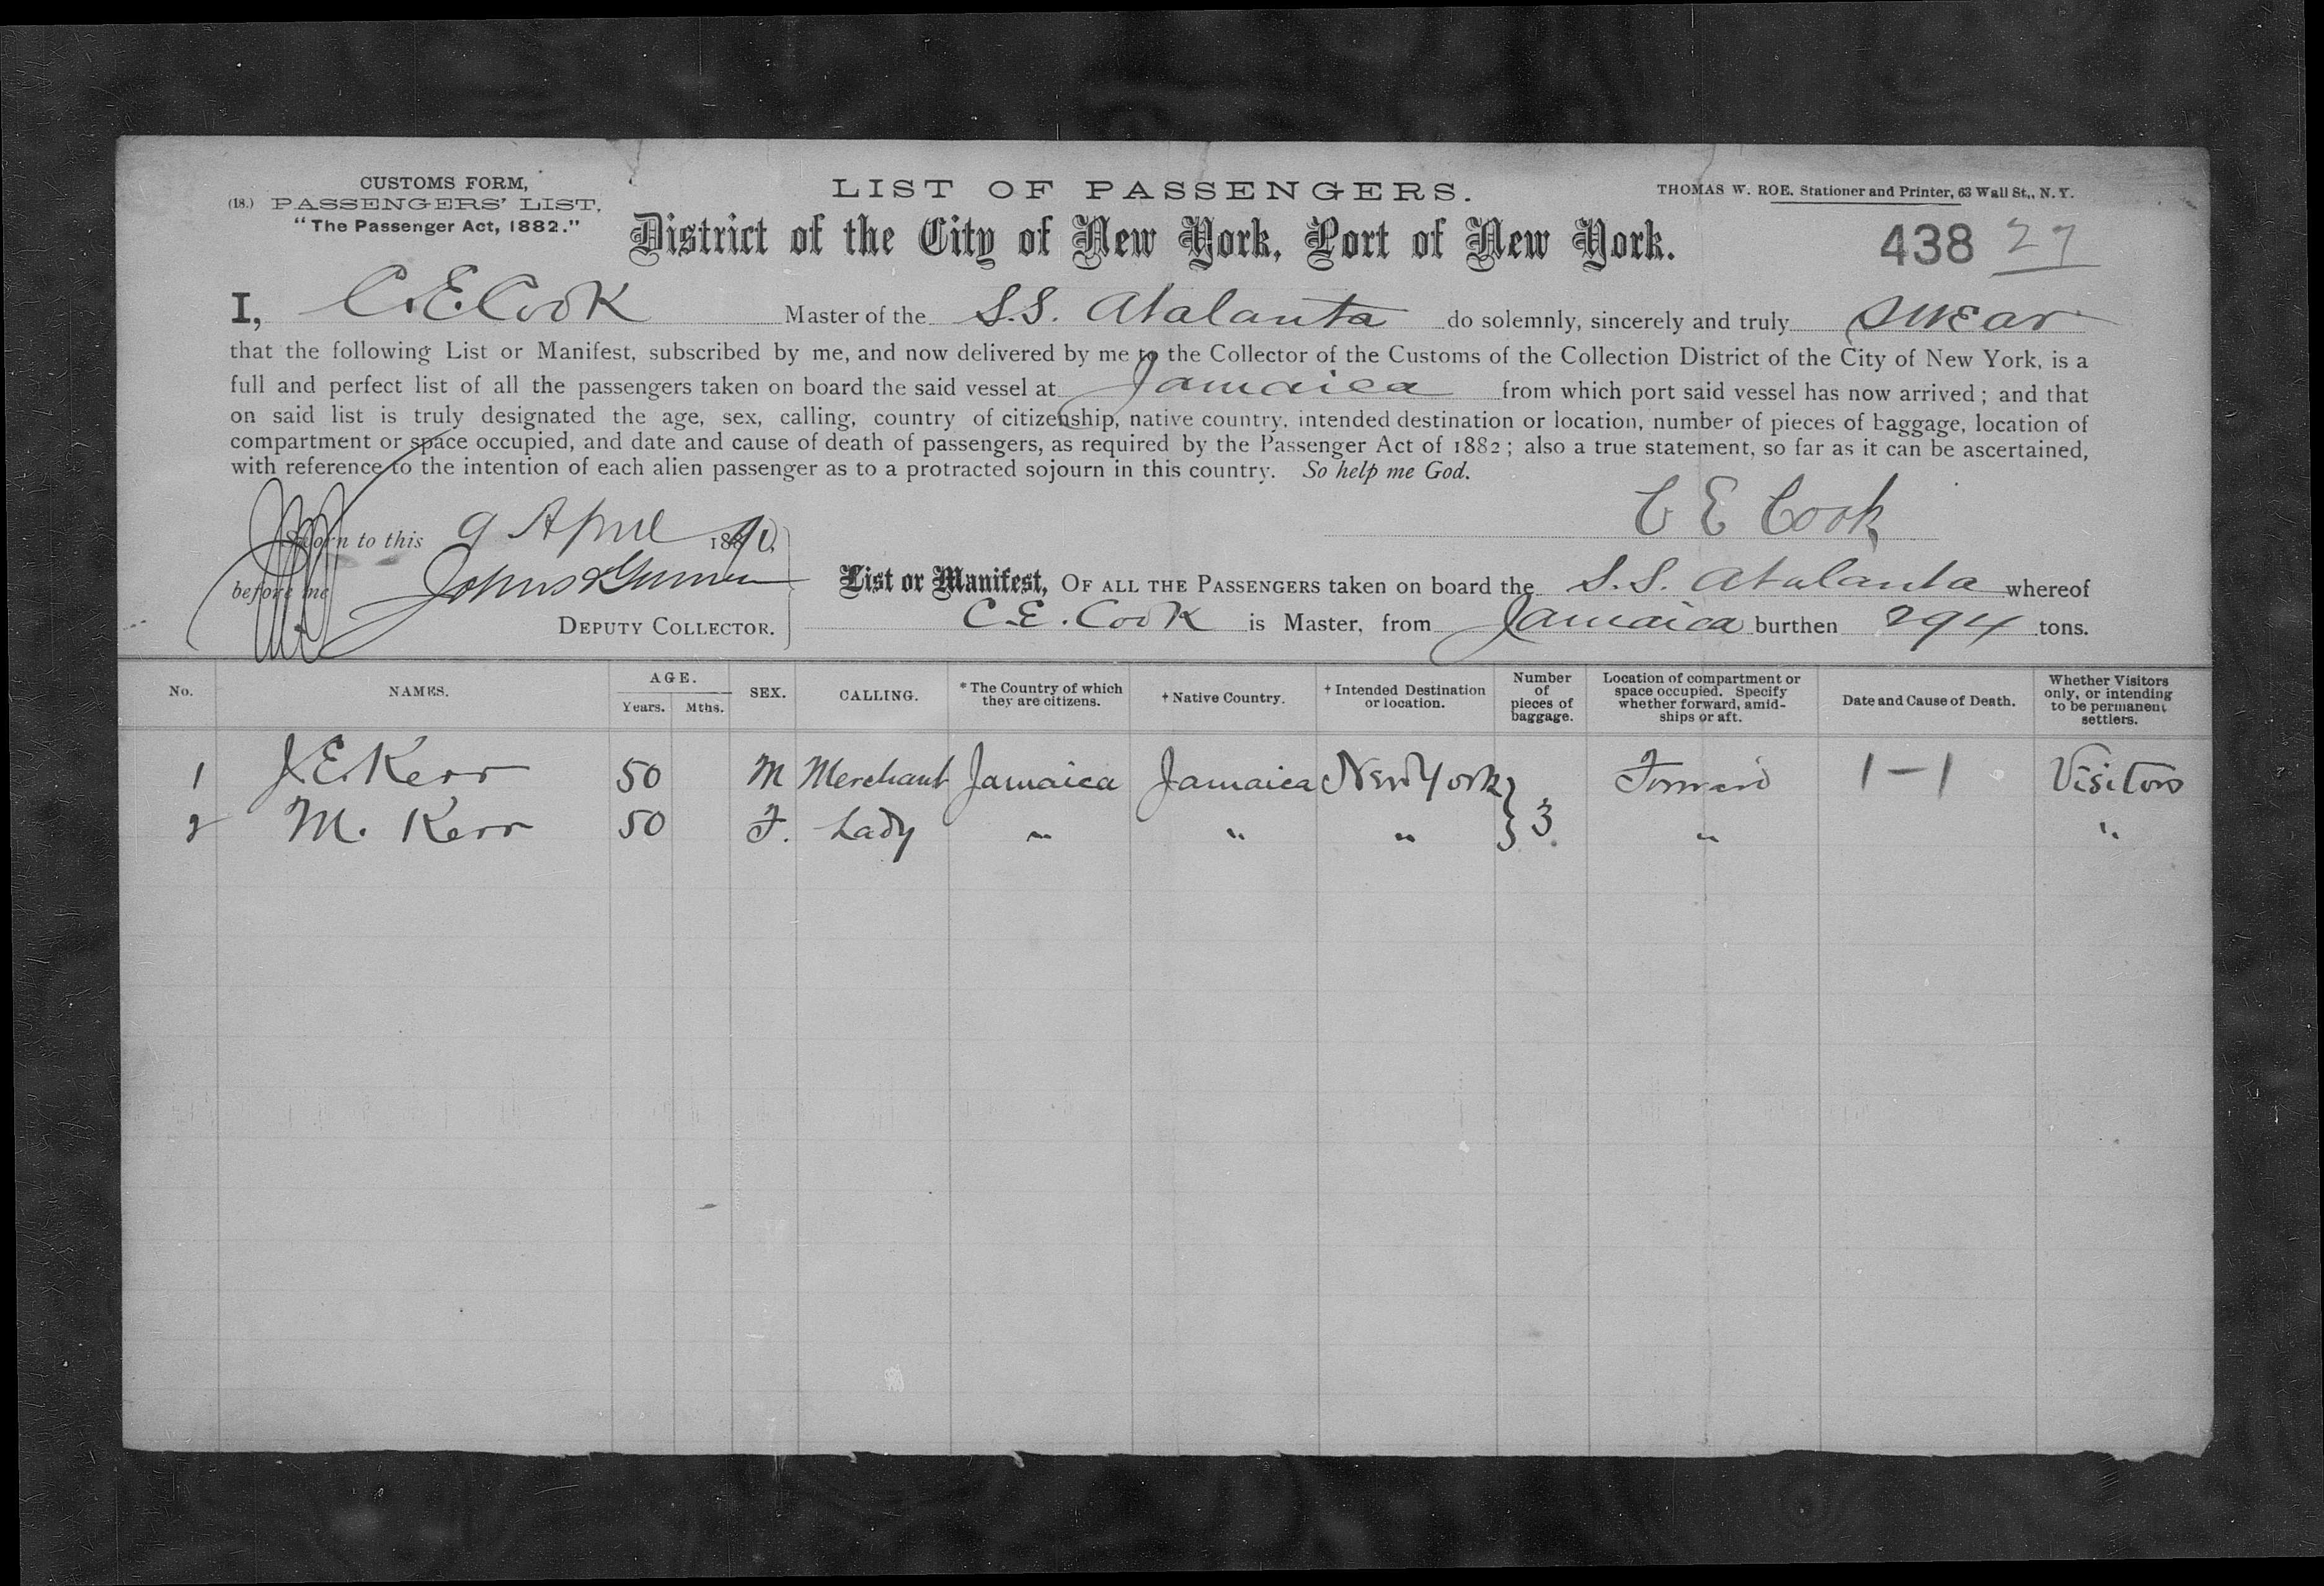 CUSTOMS FORM,
(18.) PASSENGERS' LIST,
"The Passenger Act, 1882."
LIST OF PASSENGERS.
THOMAS W. ROE, Stationer and Printer, 63 Wall St., N.Y.
District of the City of New York, Port of New York.
438 27
I, C.E. Cook Master of the S.S. Atalanta do solemnly, sincerely and truly swear
that the following List or Manifest, subscribed by me, and now delivered by me to the Collector of the Customs of the Collection District of the City of New York, is a
full and perfect list of all the passengers taken on board the said vessel at Jamaica from which port said vessel has now arrived; and that
on said list is truly designated the age, sex, calling, country of citizenship, native country, intended destination or location, number of pieces of baggage, location of
compartment or space occupied, and date and cause of death of passengers, as required by the Passenger Act of 1882; also a true statement, so far as it can be ascertained,
with reference to the intention of each alien passenger as to a protracted sojourn in this country. So help me God.
C E Cook
Sworn to this 9 April 1890
before me
DEPUTY COLLECTOR.
List or Manifest, OF ALL THE PASSENGERS taken on board the S.S. Atalanta whereof
C.E. Cook is Master, from Jamaica burthen 294 tons.
No. NAMES. AGE. Years. Mths. SEX. CALLING. * The Country of which they are citizens. † Native Country. † Intended Destination or location. Number of pieces of baggage. Location of compartment or space occupied. Specify whether forward, amidships or aft. Date and Cause of Death. Whether Visitors only, or intending to be permanent settlers.
1 J.E. Kerr 50 M Merchant Jamaica Jamaica New York } 3 Forward 1-1 Visitors
2 M. Kerr 50 F. Lady " " " " "